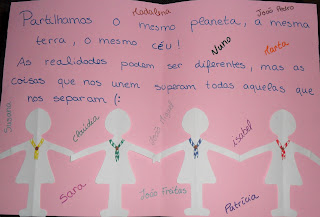 Madalena
João Pedro
Partilhamos o mesmo planeta, a mesma
terra, o mesmo céu!
Nuno
Marta
As realidades podem ser diferentes, mas as
coisas que nos unem superam todas aquelas que
nos separam (:
Susana
Claudia
Isabel
Sara
João Freitas
Patrícia